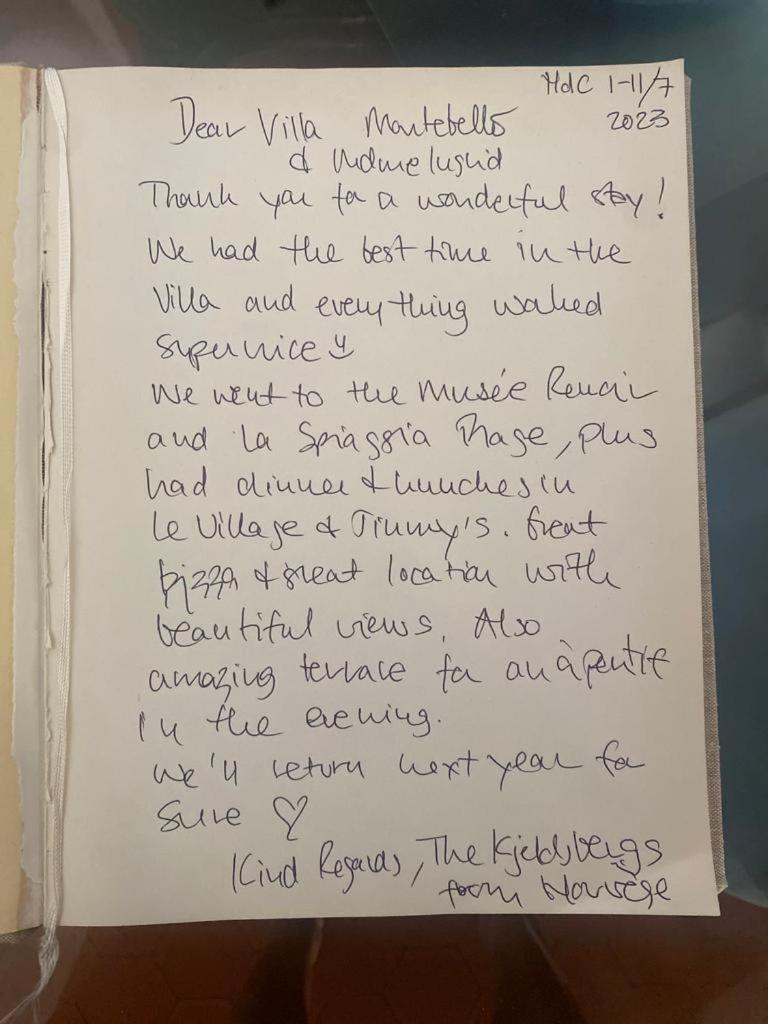 HdC 1-11/7
2023
Dear Villa Montebello
& Mdme Ingrid
Thank you for a wonderful stay!
We had the best time in the
Villa and everything worked
supernice
We went to the Musée Renoir
and La Spiaggia Plage, plus
had dinner & lunches in
Le Village & Jimmy's. Great
pizza & great location with
beautiful views. Also
amazing terrace for an àperitif
in the evening.
We'll return next year for
sure ♡
Kind Regards, The Kjeldsbergs
from Norvège